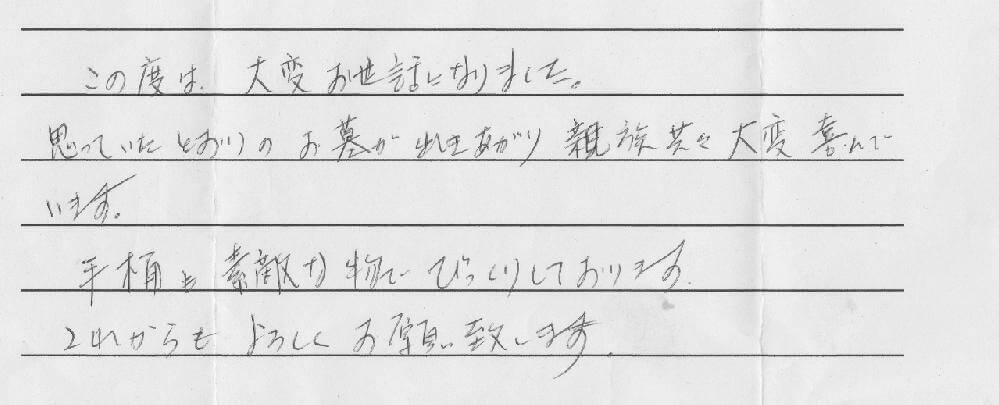 この度は、大変お世話になりました。
思っていたとおりのお墓が出来あがり親族共々大変喜んで
います。
手桶も素敵な物でびっくりしております。
これからもよろしくお願い致します。